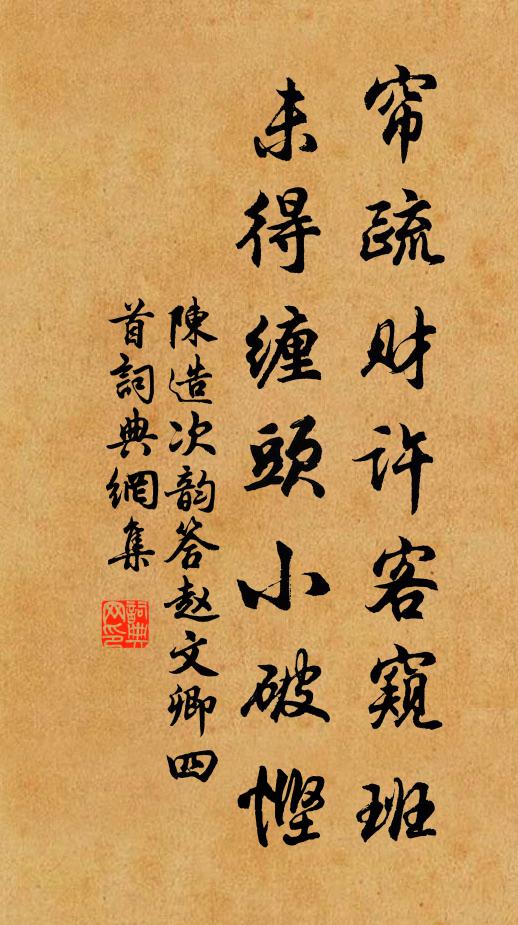 帘疏财许客窥班
未得缠頭小破悭
陳造次韵答赵文卿四
首詞典網集
詞典网印